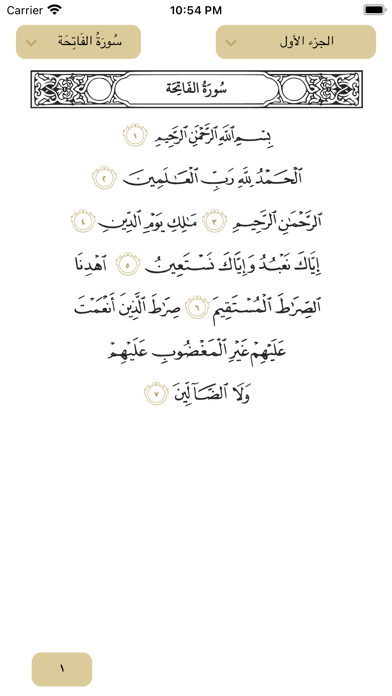 Carrier 10:54 PM
الجزء الأول
سُورَةُ الفَاتِحَة
سُورَةُ الفَاتِحَة
بِسْمِ ٱللَّهِ ٱلرَّحْمَٰنِ ٱلرَّحِيمِ ١
ٱلْحَمْدُ لِلَّهِ رَبِّ ٱلْعَٰلَمِينَ ٢
ٱلرَّحْمَٰنِ ٱلرَّحِيمِ ٣ مَٰلِكِ يَوْمِ ٱلدِّينِ ٤
إِيَّاكَ نَعْبُدُ وَإِيَّاكَ نَسْتَعِينُ ٥ ٱهْدِنَا
ٱلصِّرَٰطَ ٱلْمُسْتَقِيمَ ٦ صِرَٰطَ ٱلَّذِينَ أَنْعَمْتَ
عَلَيْهِمْ غَيْرِ ٱلْمَغْضُوبِ عَلَيْهِمْ
وَلَا ٱلضَّآلِّينَ ٧
١